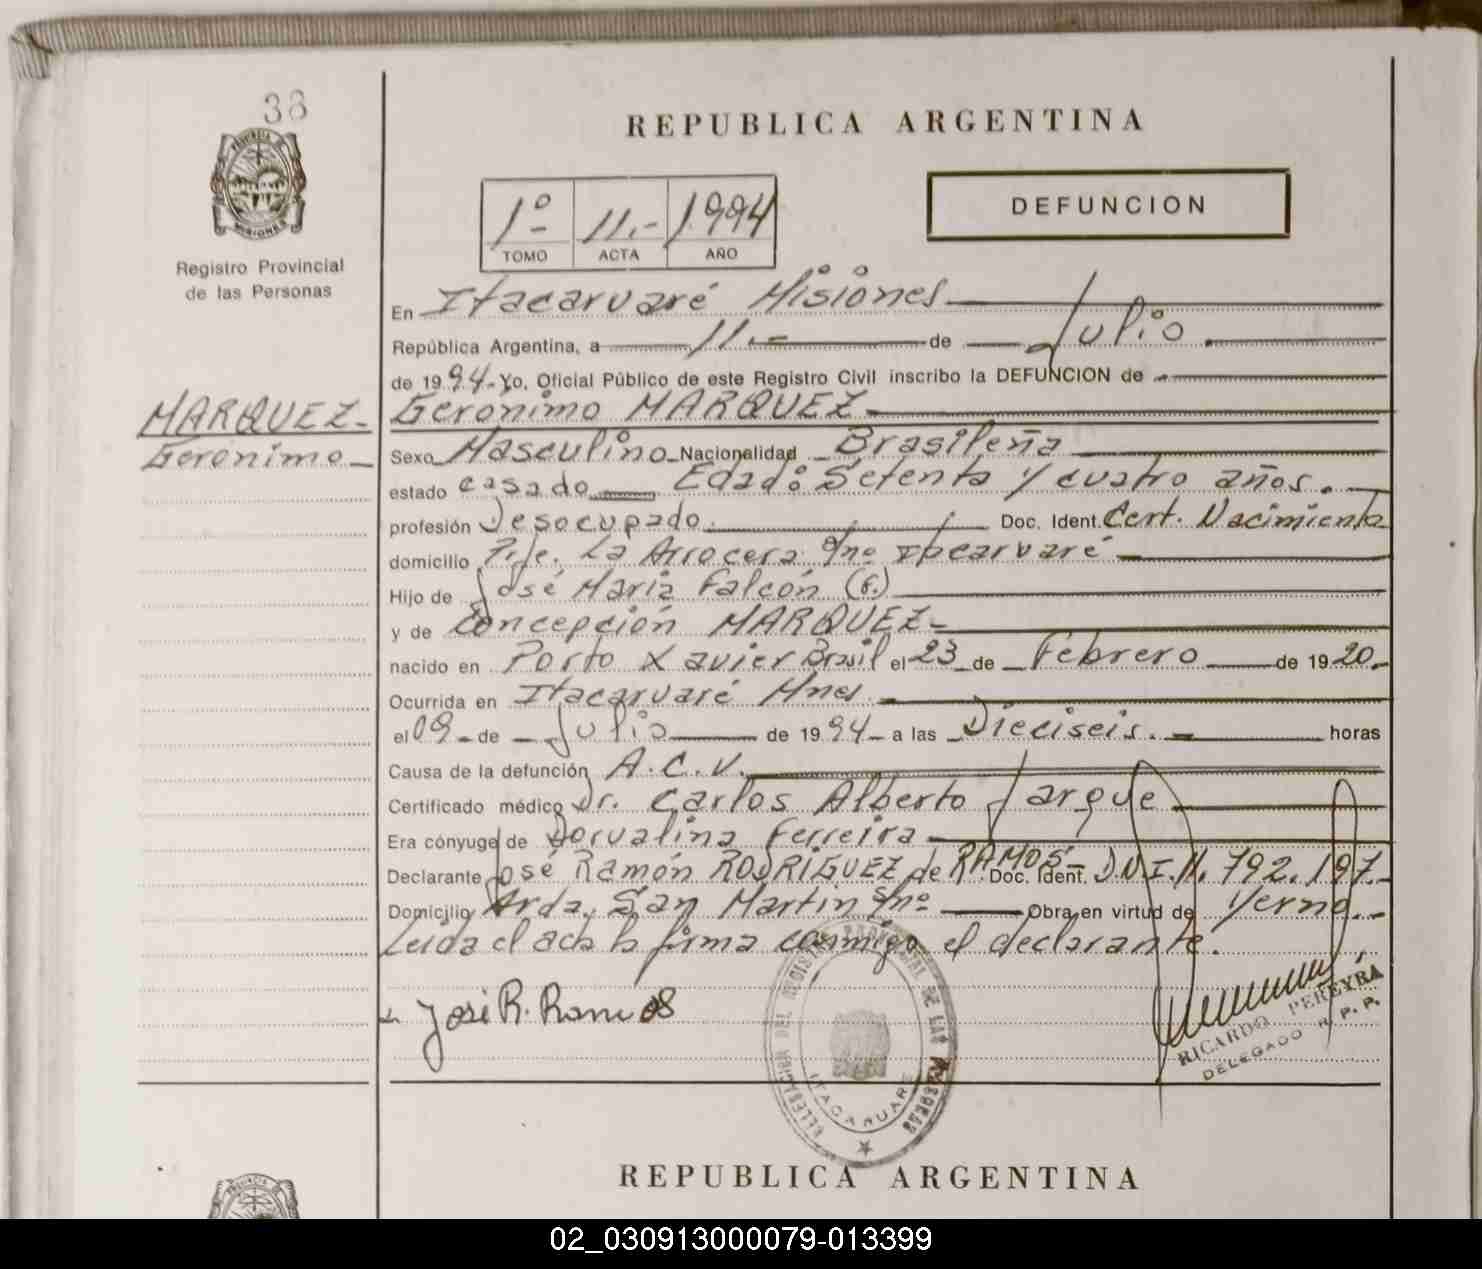 38
REPUBLICA ARGENTINA
1º 11.- 1994
TOMO ACTA AÑO
DEFUNCION
Registro Provincial
de las Personas
En Itacaruaré Misiones
República Argentina, a 11.- de Julio
de 1994.- Yo, Oficial Público de este Registro Civil inscribo la DEFUNCION de
MARQUEZ-
Gerónimo
Gerónimo MARQUEZ
Sexo Masculino Nacionalidad Brasileña
estado casado Edad: Setenta y cuatro años.
profesión Desocupado. Doc. Ident. Cert. Nacimiento
domicilio Pje. La Arrocera s/nº Itacaruaré
Hijo de José María Falcón (f.)
y de Concepción MARQUEZ-
nacido en Porto Xavier Brasil el 23 de Febrero de 1920.
Ocurrida en Itacaruaré Mnes
el 09 de Julio de 1994 a las Dieciseis. horas
Causa de la defunción A.C.V.
Certificado médico Dr. Carlos Alberto Jarque
Era cónyuge de Dorvalina Ferreira
Declarante José Ramón RODRIGUEZ de RAMOS- Doc. Ident. D.N.I. 11.792.197.
Domicilio Avda. San Martin s/nº Obra en virtud de Yerno.
Leida el acta la firma conmigo el declarante.
José R. Ramos
DELEGACION DEL REGISTRO PROVINCIAL DE LAS PERSONAS
ITACARUARE
RICARDO PEREYRA
DELEGADO R. P. P.
REPUBLICA ARGENTINA
02_030913000079-013399